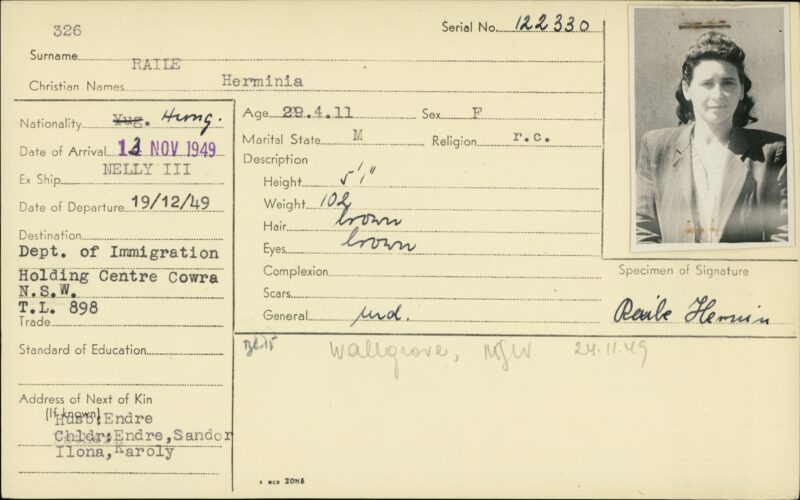 326
Serial No. 122330
Surname RAILE
Christian Names Herminia
Nationality Yug. Hung.
Date of Arrival 13 NOV 1949
Ex Ship NELLY III
Date of Departure 19/12/49
Destination
Dept. of Immigration
Holding Centre Cowra
N.S.W.
T.L. 898
Trade
Standard of Education
Address of Next of Kin
(If known)
Husb: Endre
Chldr: Endre, Sandor
Ilona, Karoly
Age 29.4.11 Sex F
Marital State M Religion r.c.
Description
Height 5'1"
Weight 102
Hair brown
Eyes brown
Complexion
Scars
General
Specimen of Signature
Raile Hermin
Wallgrove, NSW 24.11.49
2085